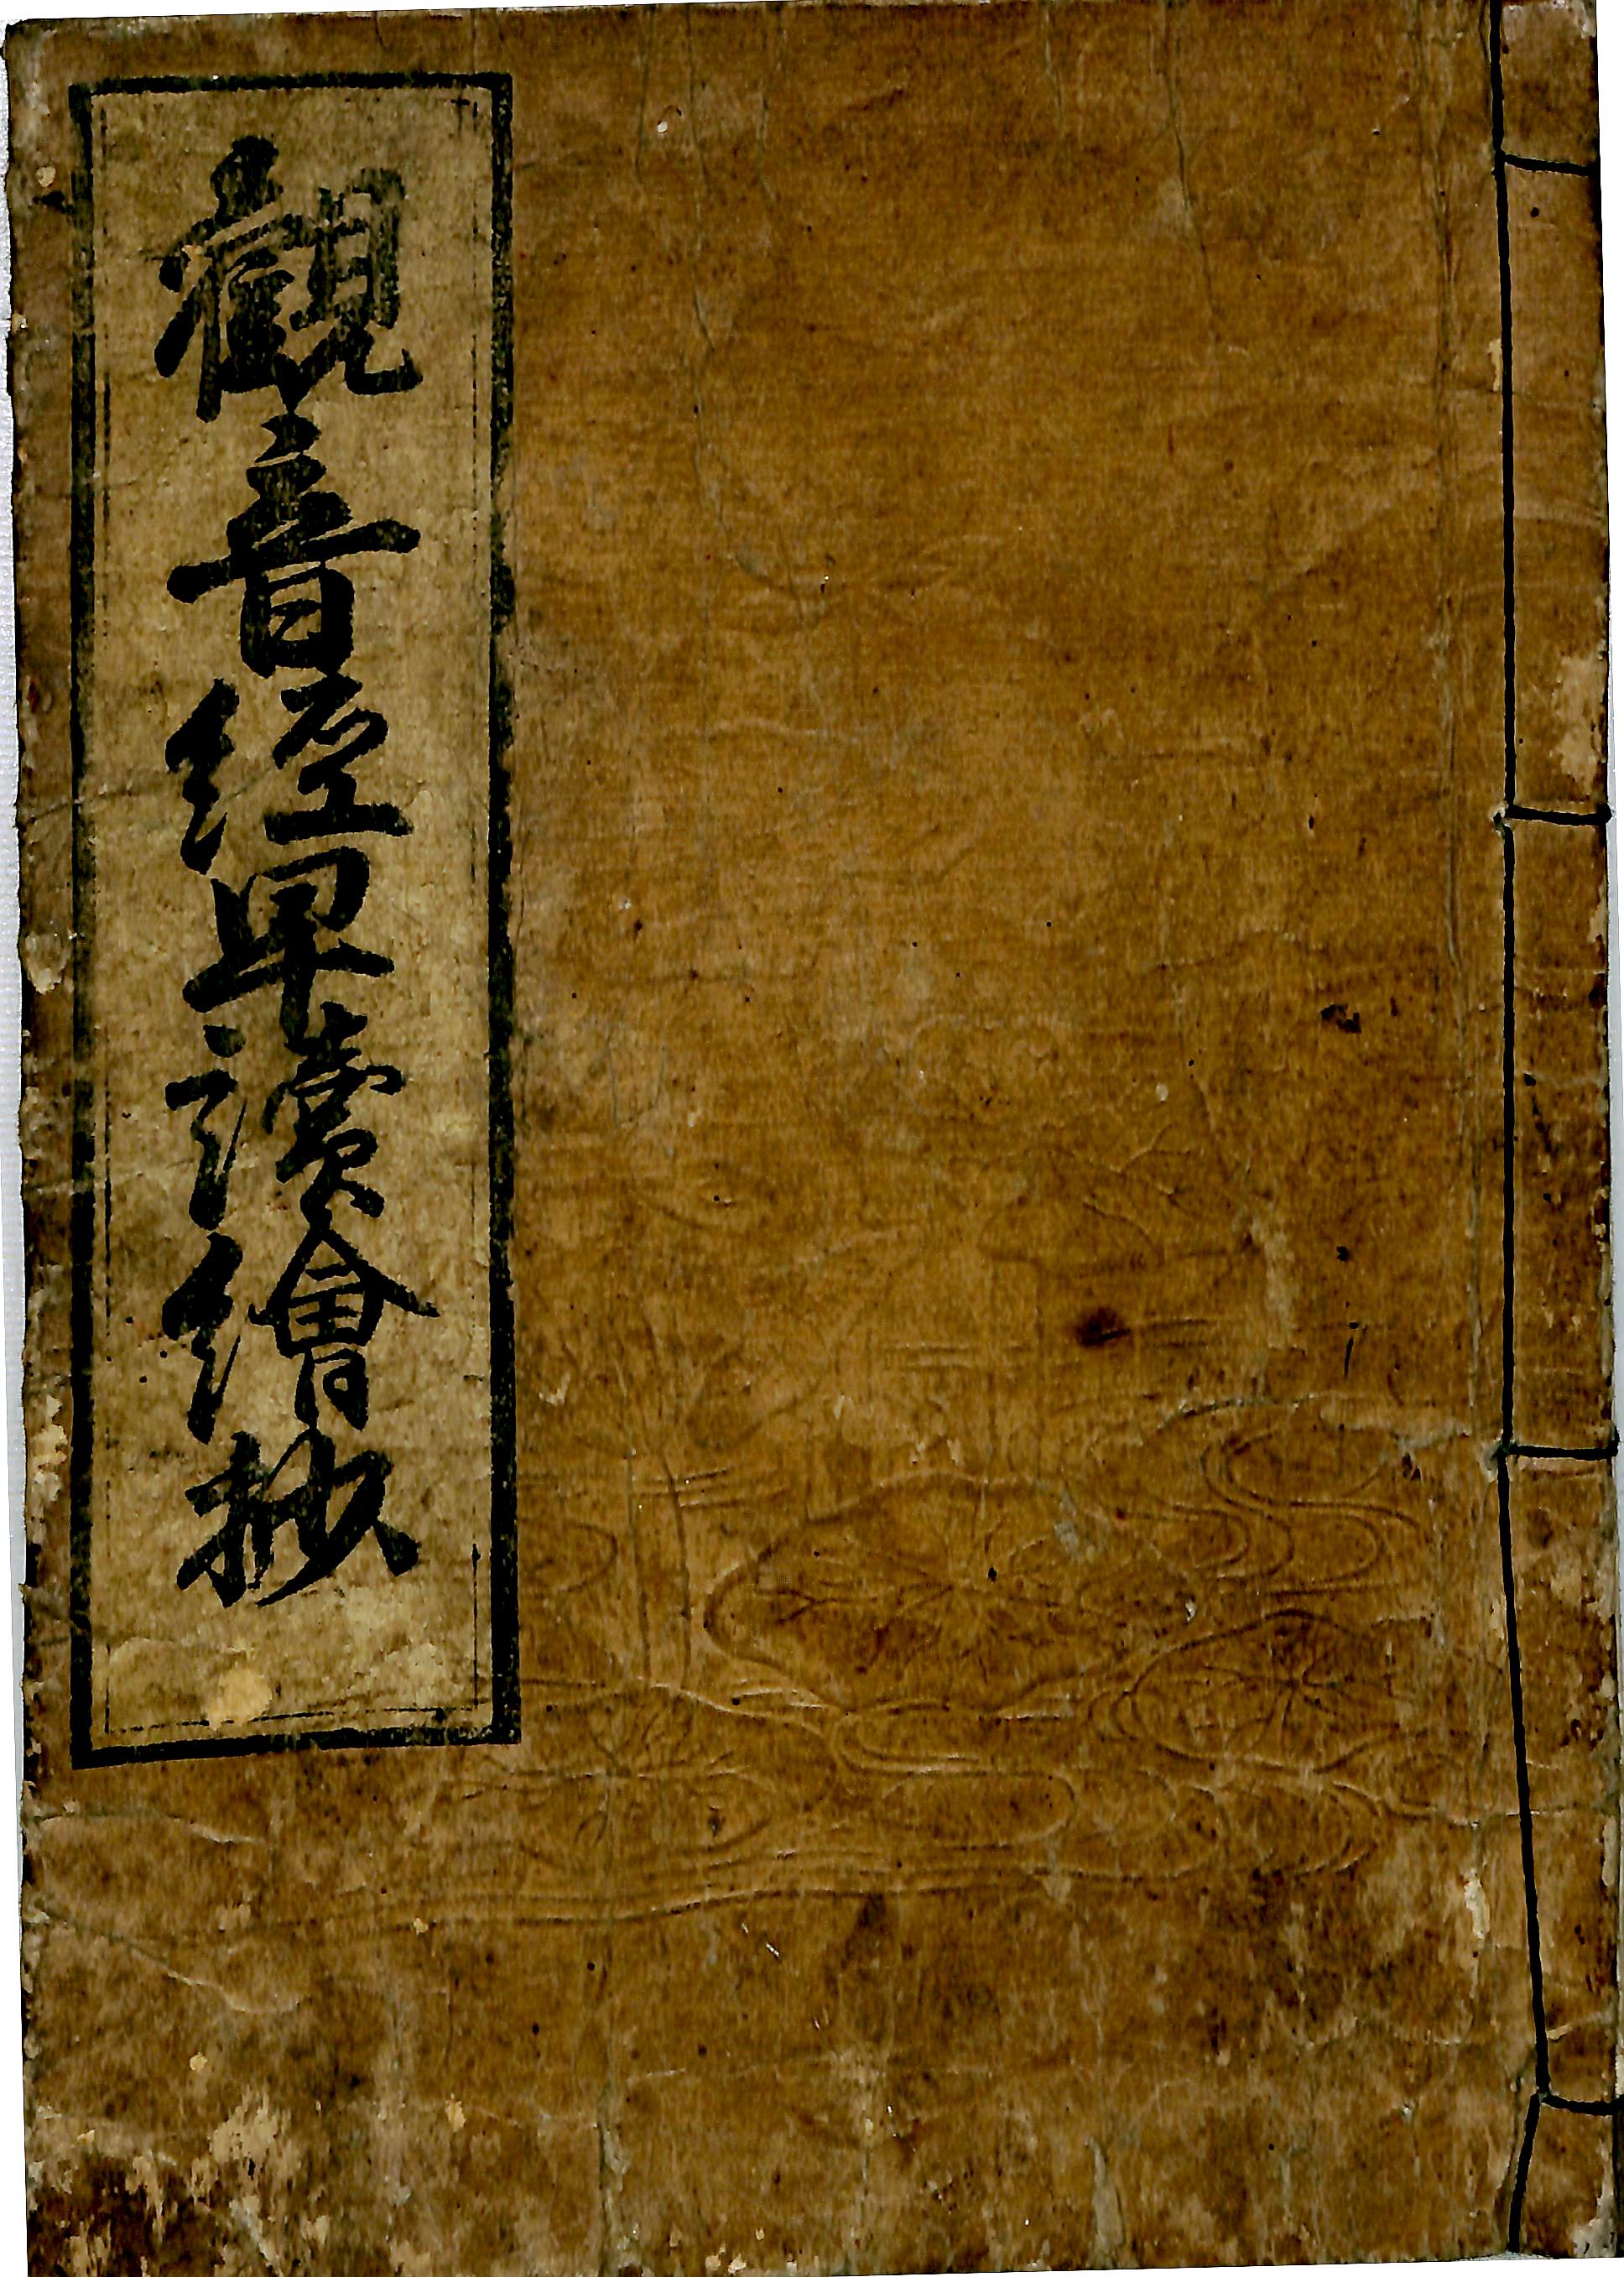 觀音經早讀繪抄